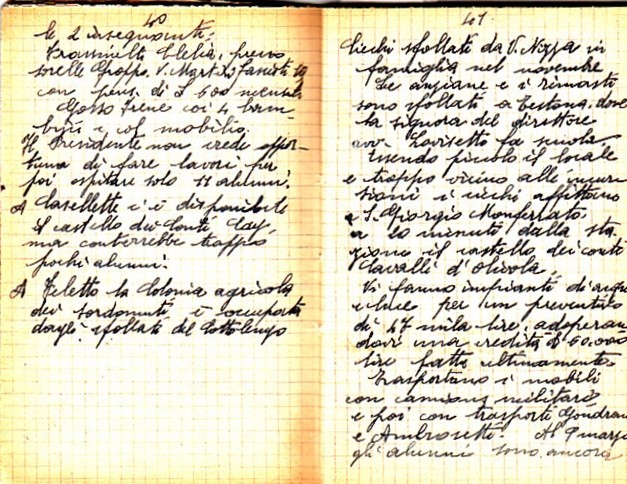 40
le 2 insegnanti:
Frassinelli Clelia, presso
sorelle Groppo. V. Martiri Fascisti 19
con pens. di £ 600 mensili
Gosso Irene coi 4 bam-
bini e col mobilio.
Il Presidente non crede oppor-
tuno di fare lavori per
poi ospitare solo 11 alunni.
A Casellette c'è disponibile
il castello dei Conti Cays,
ma conterrebbe troppo
pochi alunni.
A Feletto la Colonia agricola
dei sordomuti è occupata
dagli sfollati del Cottolengo
41
Ciechi sfollati da V. Nizza in
famiglia nel novembre
Le anziane e i rimasti
sono sfollati a Testona, dove
la signora del direttore
avv. Lovisetto fa scuola
Essendo piccolo il locale
e troppo vicino alle incur
sioni i ciechi affittano
a S. Giorgio Monferrato
a 20 minuti dalla sta
zione il castello dei conti
Cavalli d'Olivola.
Vi fanno impianti di acqua
e luce per un preventivo
di 47 mila lire, adoperan
dovi una eredità £ 60.000
lire fatta ultimamente.
Trasportano i mobili
con camions militari
e poi con trasporti Gondrand
e Ambrosetti. Al 9 marzo
gli alunni sono ancora